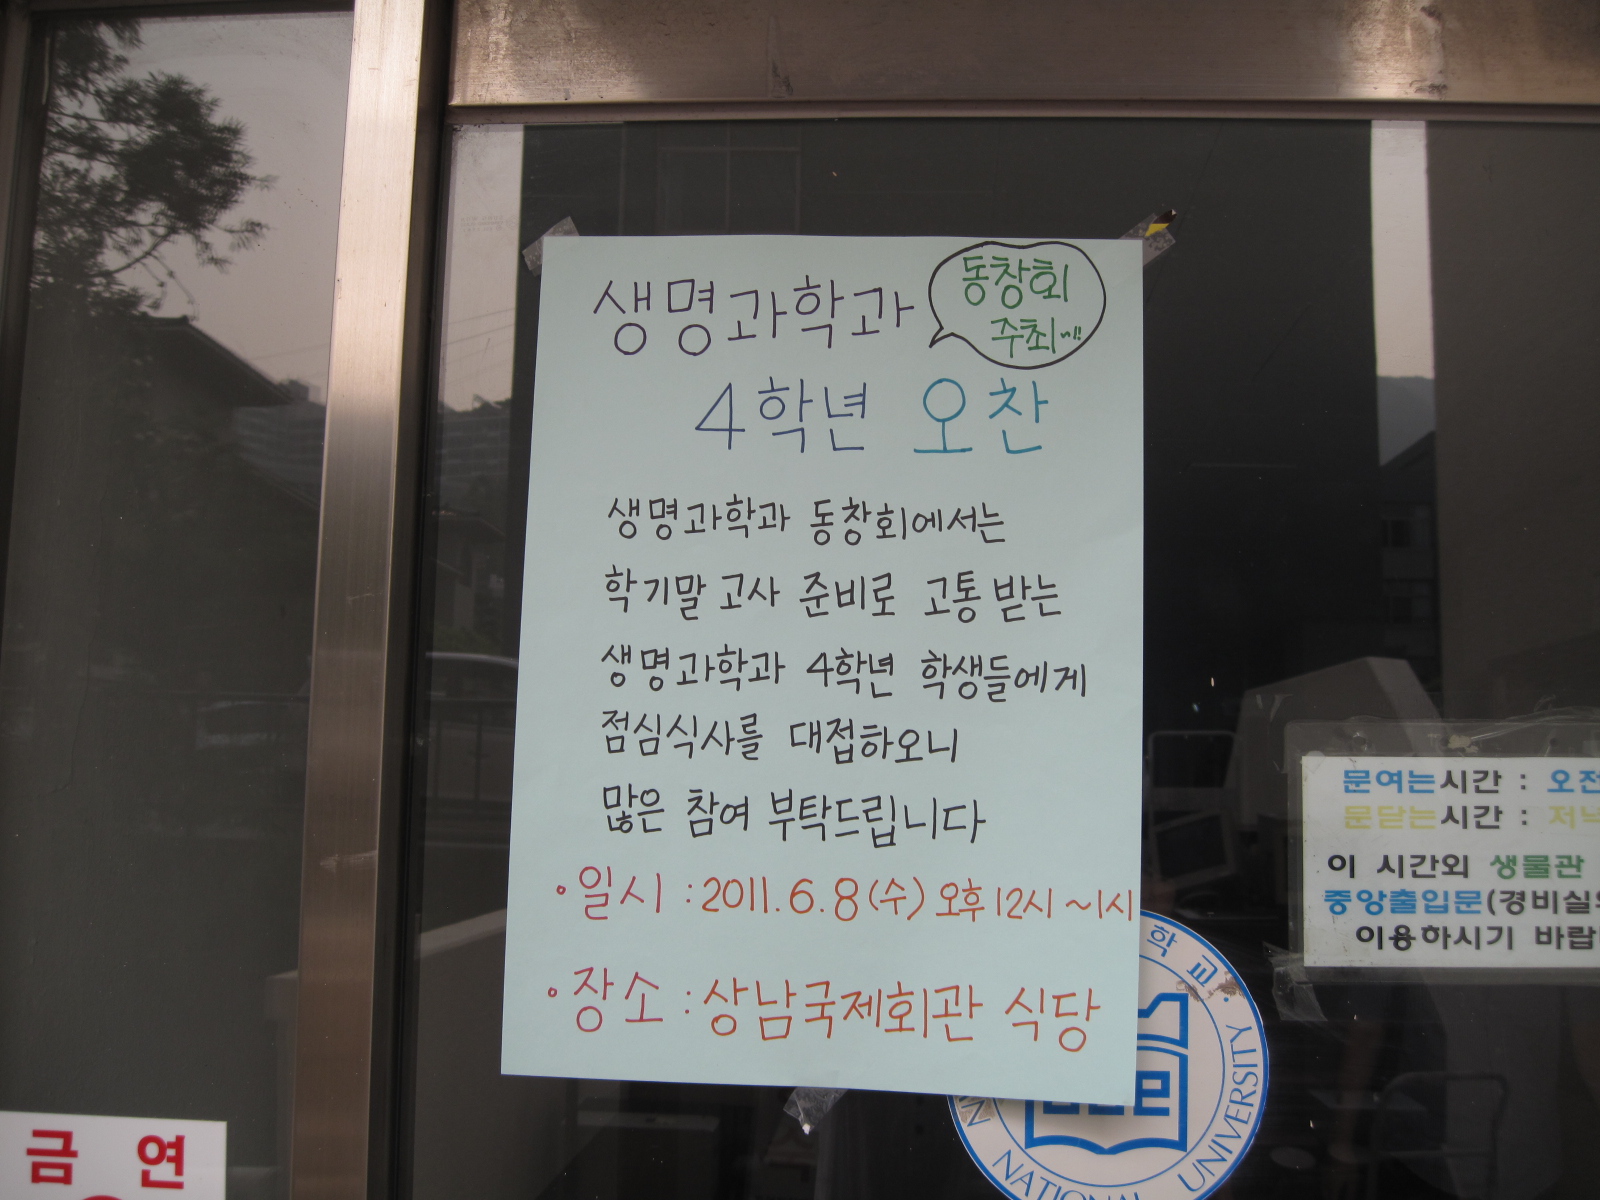 생명과학과
동창회
주최~!!
4학년 오찬
생명과학과 동창회에서는
학기말 고사 준비로 고통 받는
생명과학과 4학년 학생들에게
점심식사를 대접하오니
많은 참여 부탁드립니다
• 일시 : 2011. 6. 8 (수) 오후 12시 ~1시
• 장소 : 상남국제회관 식당
문여는시간 : 오전
문닫는시간 : 저녁
이 시간외 생물관
중앙출입문(경비실
이용하시기 바랍
학교·
NATIONAL UNIVERSITY
금 연